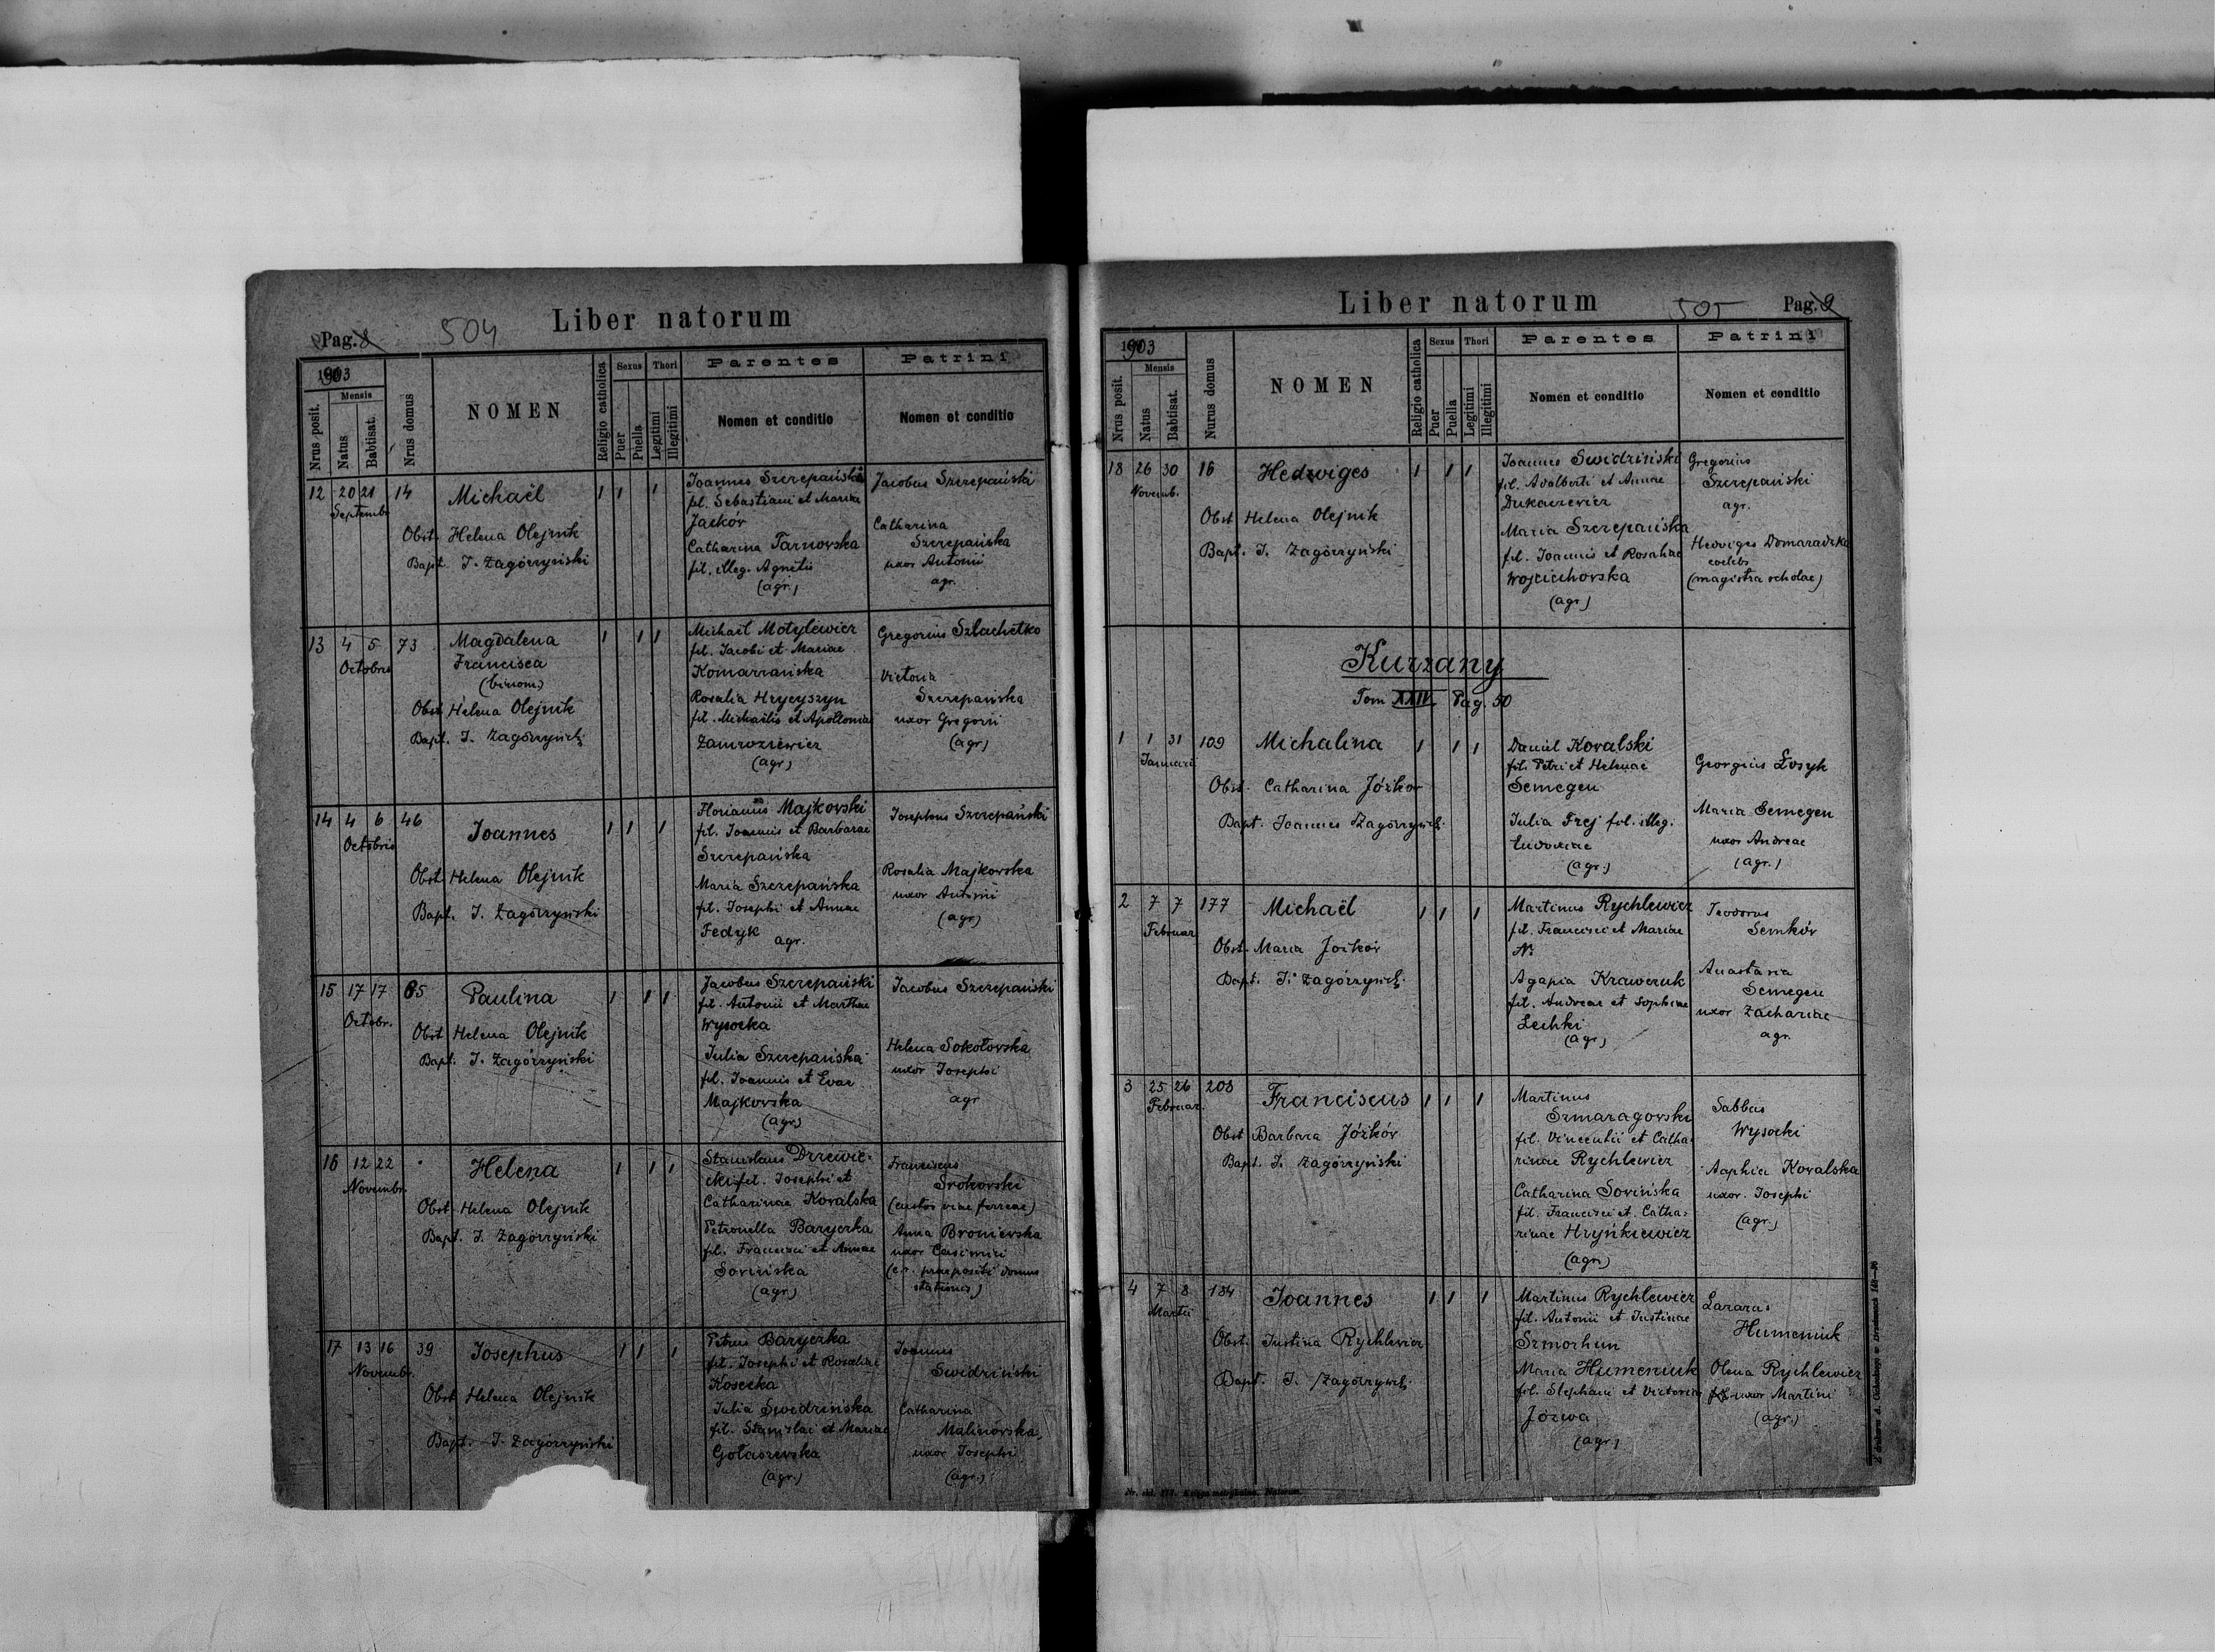 Pag. 8
504
Liber natorum
1903
Nrus posit.
Mensis
Natus
Babtisat.
Nrus domus
NOMEN
Religio catholica
Sexus
Puer
Puella
Thori
Legitimi
Illegitimi
Parentes
Nomen et conditio
Patrini
Nomen et conditio
12 20 21 14
Septembr
Michaël
Obst. Helena Olejnik
Bapt. J. Zagórzyński
1 1 1
Joannes Szczepański
fil. Sebastiani et Mariae
Jackóv
Catharina Tarnovska
fil. illeg. Agnetis
(agr.)
Jacobus Szczepański
Catharina
Szczepańska
uxor Antonii
agr.
13 4 5 73
Octobris
Magdalena
Francisca
(binom.)
Obst. Helena Olejnik
Bapt. J. Zagórzyński
1 1 1
Michaël Motylewicz
fil. Jacobi et Mariae
Komarrańska
Rosalia Hrycyszyn
fil. Michaëlis et Apolloniae
Zamroziewicz
(agr)
Gregorius Szlachetko
Victoria
Szczepańska
uxor Gregorii
(agr)
14 4 6 46
Octobris
Joannes
Obst. Helena Olejnik
Bapt. J. Zagórzyński
1 1 1
Florianus Majkovski
fil. Joannis et Barbarae
Szczepańska
Maria Szczepańska
fil. Josephi et Annae
Fedyk
agr.
Josephus Szczepański
Rosalia Majkovska
uxor Antonii
(agr)
15 17 17 65
Octobr.
Paulina
Obst. Helena Olejnik
Bapt. J. Zagórzyński
1 1 1
Jacobus Szczepański
fil. Antonii et Marthae
Wysocka
Julia Szczepańska
fil. Joannis et Evae
Majkovska
(agr)
Jacobus Szczepański
Helena Sokołovska
uxor Josephi
agr
16 12 22
Novembr.
Helena
Obst. Helena Olejnik
Bapt. J. Zagórzyński
1 1 1
Stanislaus Drzewie-
cki fil. Josephi et
Catharinae Kovalska
Petronella Baryczka
fil. Francisci et Annae
Sovińska
(agr.)
Franciscus
Srokovski
(custos viae ferreae)
Anna Broniewska
uxor Casimiri
praepositi domus
stationis)
17 13 16 39
Novembr.
Josephus
Obst. Helena Olejnik
Bapt. J. Zagórzyński
1 1 1
Petrus Baryczka
fil. Josephi et Rosaliae
Kosecka
Julia Swidzińska
fil. Stanislai et Mariae
Gołaszevska
(agr.)
Joannes
Swidziński
Catharina
Malinovska,
uxor Josephi
(agr.)
Liber natorum
505
Pag. 9
1903
Nrus posit.
Mensis
Natus
Babtisat.
Nurus domus
NOMEN
Religio catholica
Sexus
Puer
Puella
Thori
Legitimi
Illegitimi
Parentes
Nomen et conditio
Patrini
Nomen et conditio
18 26 30 16
Novemb.
Hedviges
Obst. Helena Olejnik
Bapt. J. Zagórzyński
1 1 1
Joannes Swidziński
fil. Adalberti et Annae
Dukaczewicz
Maria Szczepańska
fil. Joannis et Rosaliae
Wojciechovska
(agr)
Gregorius
Szczepański
agr.
Hedviges Domaradzka
coelebs
(magistra scholae)
Kurzany
Tom XXIV. Pag. 50
1 1 31 109
Januarii
Michalina
Obst. Catharina Józkov
Bapt. Joannes Zagórzyński
1 1 1
Daniel Kovalski
fil. Petri et Helenae
Semegen
Julia Frej fil. illeg.
Eudoxiae
(agr.)
Georgius Łosyk
Maria Semegen
uxor Andreae
(agr.)
2 7 7 177
Februar
Michaël
Obst. Maria Józkóv
Bapt. J. Zagórzyński
1 1 1
Martinus Rychlewicz
fil. Francisci et Mariae
N.
Agapia Krawczuk
fil. Andreae et Sophiae
Lechki
(agr)
Teodorus
Semkóv
Anastasia
Semegen
uxor Zachariae
agr.
3 25 26 208
Februar.
Franciscus
Obst. Barbara Józkóv
Bapt. J. Zagórzyński
1 1 1
Martinus
Szmaragovski
fil. Vincentii et Catha-
rinae Rychlewicz
Catharina Sovińska
fil. Francisci et Catha-
rinae Hryńkiewicz
(agr)
Sabbas
Wysocki
Kovalska
uxor. Josephi
(agr.)
4 7 8 184
Martii
Joannes
Obst. Justina Rychlewicz
Bapt. J. Zagórzyński
1 1 1
Martinus Rychlewicz
fil. Antonii et Justinae
Szmorhun
Maria Humeniuk
fil. Stephani et Victoriae
Józwa
(agr)
Lazarus
Humeniuk
Olena Rychlewicz
uxor Martini
(agr.)